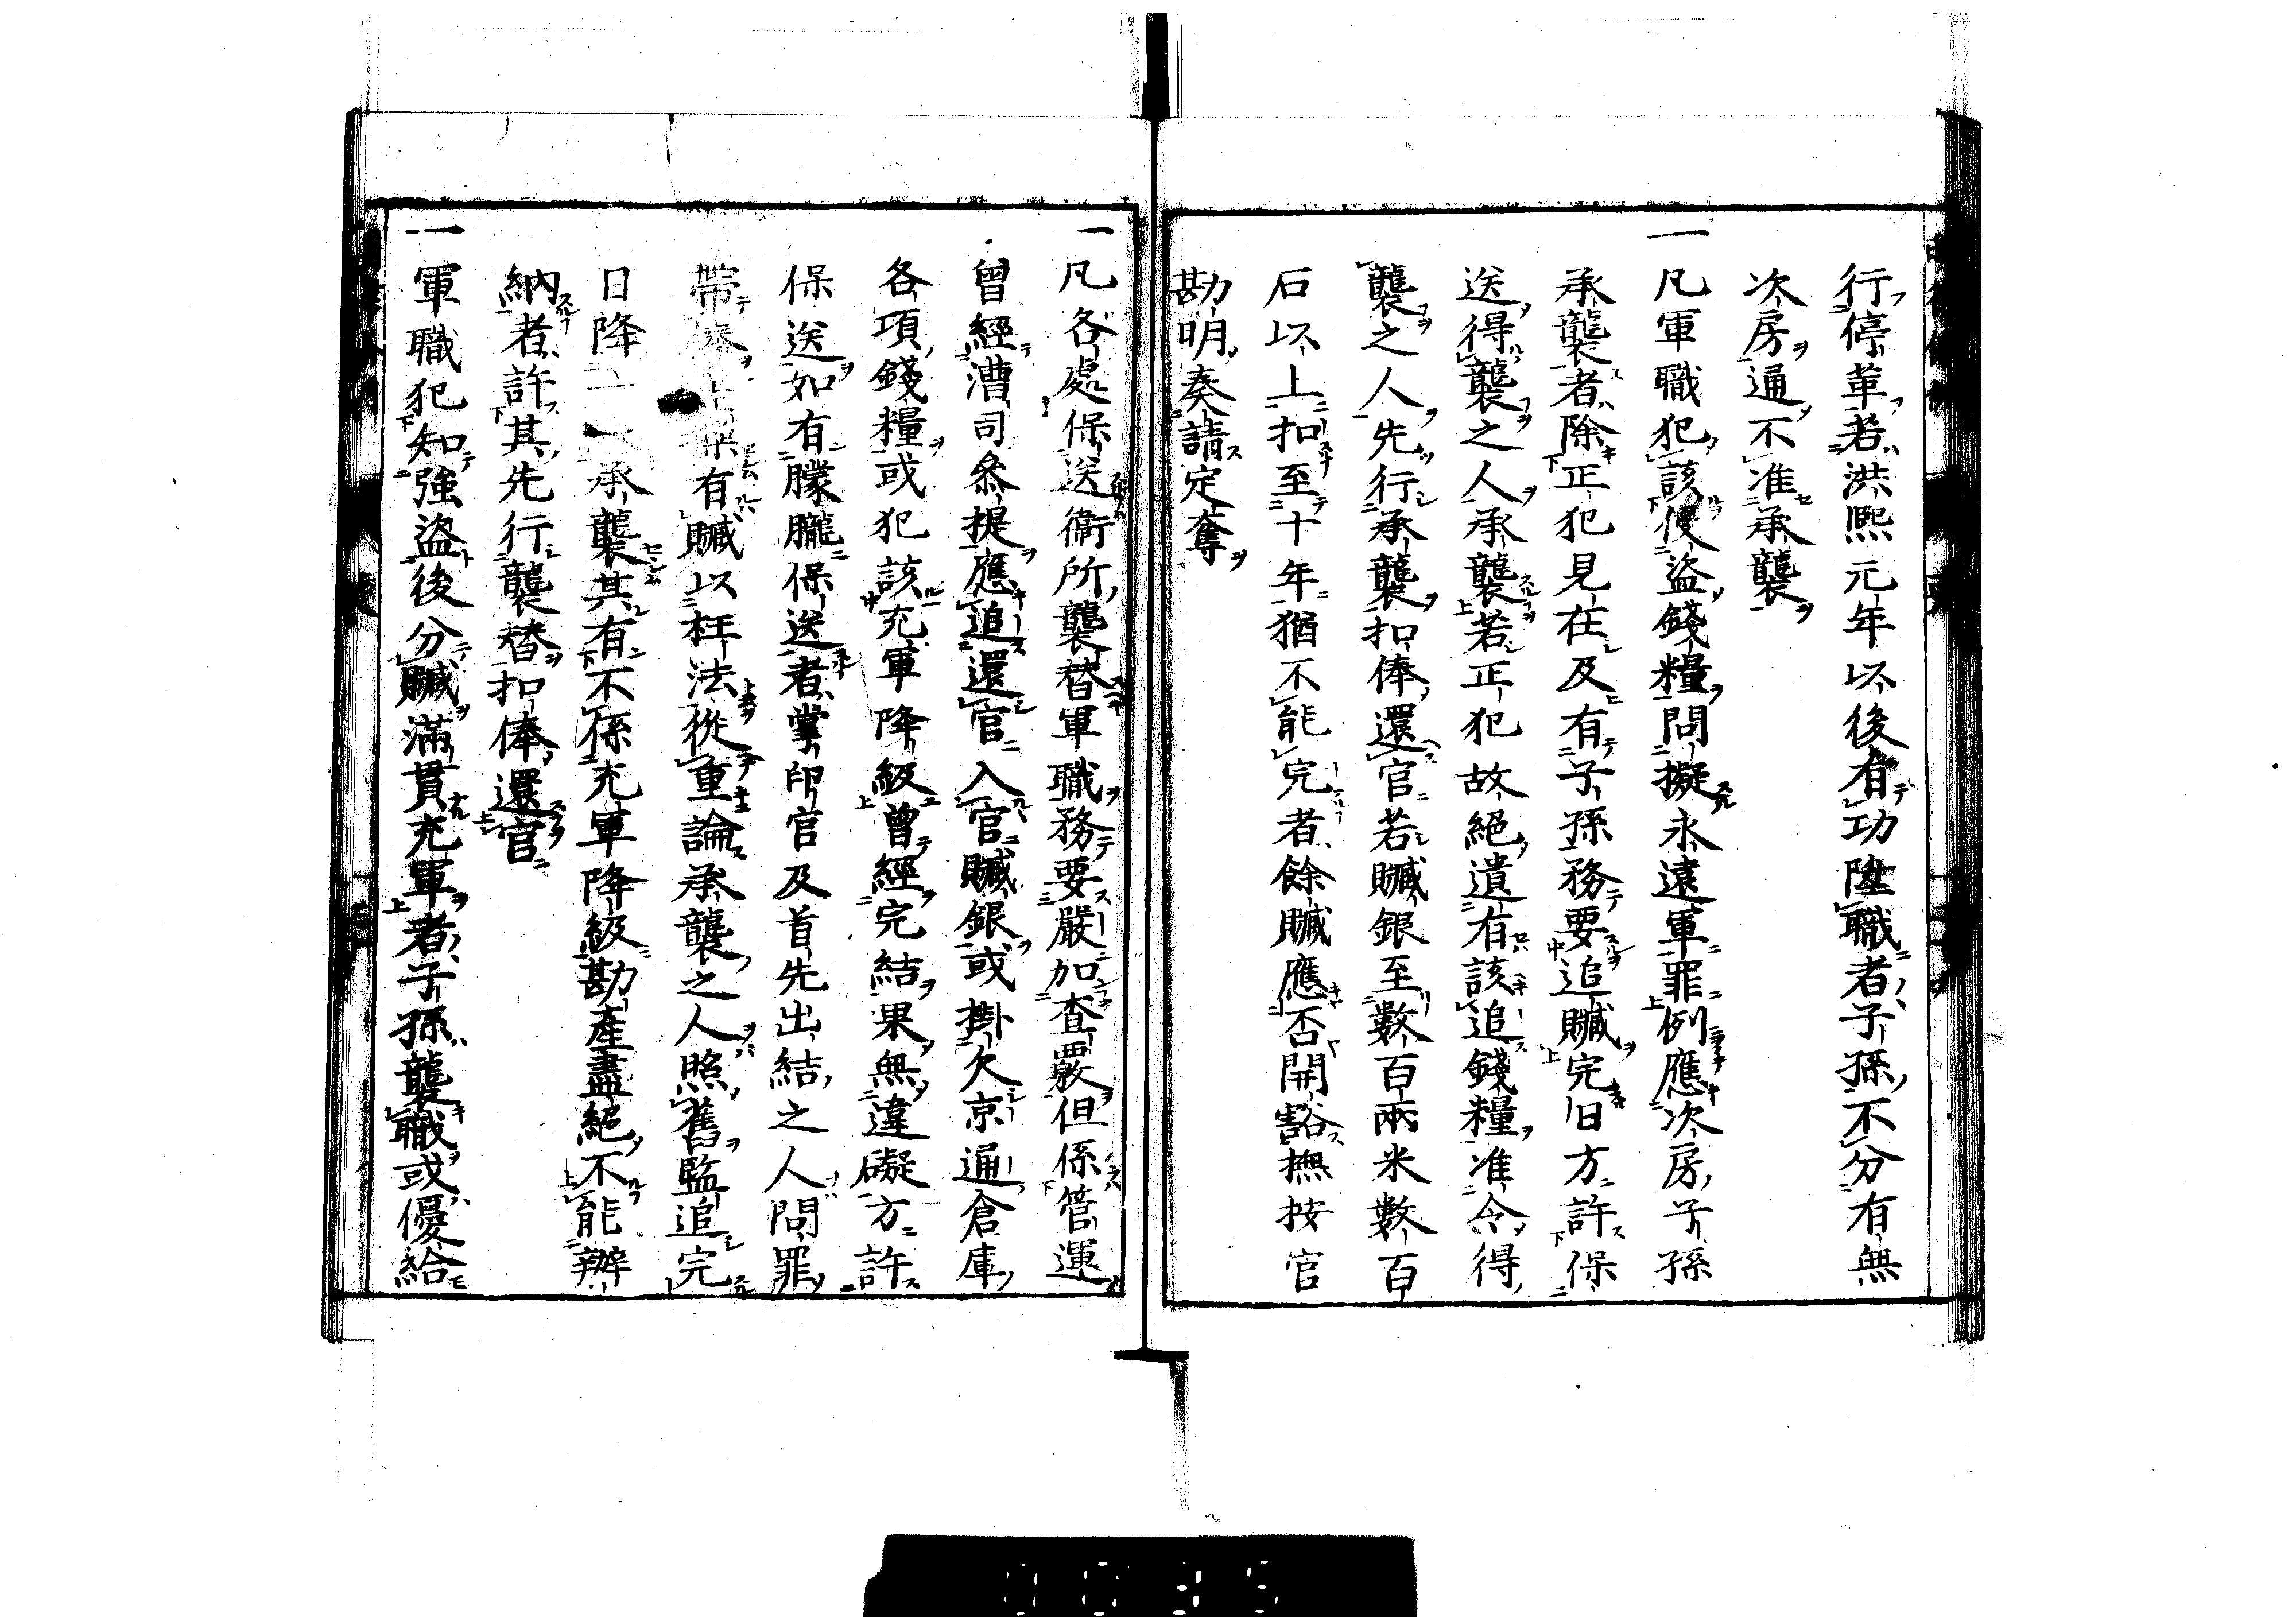 行停革若洪熙元年以後有功陞職者子孫不分有無
次房通不准承襲
一凡軍職犯該侵盜錢糧問擬永遠軍罪例應次房子孫
承襲者除正犯見在及有子孫務要追贓完日方許保
送得襲之人承襲若正犯故絕遺有該追錢糧准令得
襲之人先行承襲扣俸還官若贓銀至數百兩米數百
石以上扣至十年猶不能完者餘贓應否開豁撫按官
勘明奏請定奪
一凡各處保送衞所襲替軍職務要嚴加查覈但係管運
曾經漕司叅提應追還官入官贓銀或掛欠京通倉庫
各項錢糧或犯該充軍降級曾經完結果無違礙方許
保送如有朦朧保送者掌印官及首先出結之人問罪
帶奉有贓以枉法從重論承襲之人照舊監追完
日降一承襲其有不係充軍降級勘產盡絕不能辦
納者許其先行襲替扣俸還官
一軍職犯知強盜後分贓滿貫充軍者子孫襲職或優給